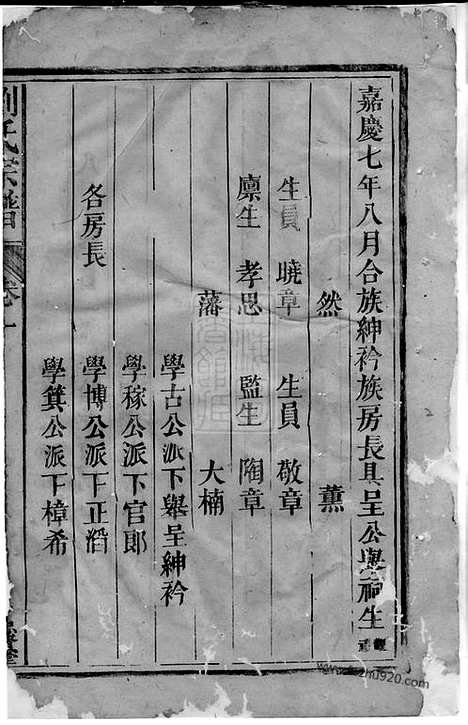 嘉慶七年八月合族紳衿族房長具呈公舉祠生
然 薰
生員 曉章 生員 敬章
廩生 孝思 監生 陶章
藩 大楠
學古公派下舉呈紳衿
學稼公派下官郎
各房長 學博公派下正滔
學箕公派下樟希
劉氏宗譜 卷一
www.jiapu920.com